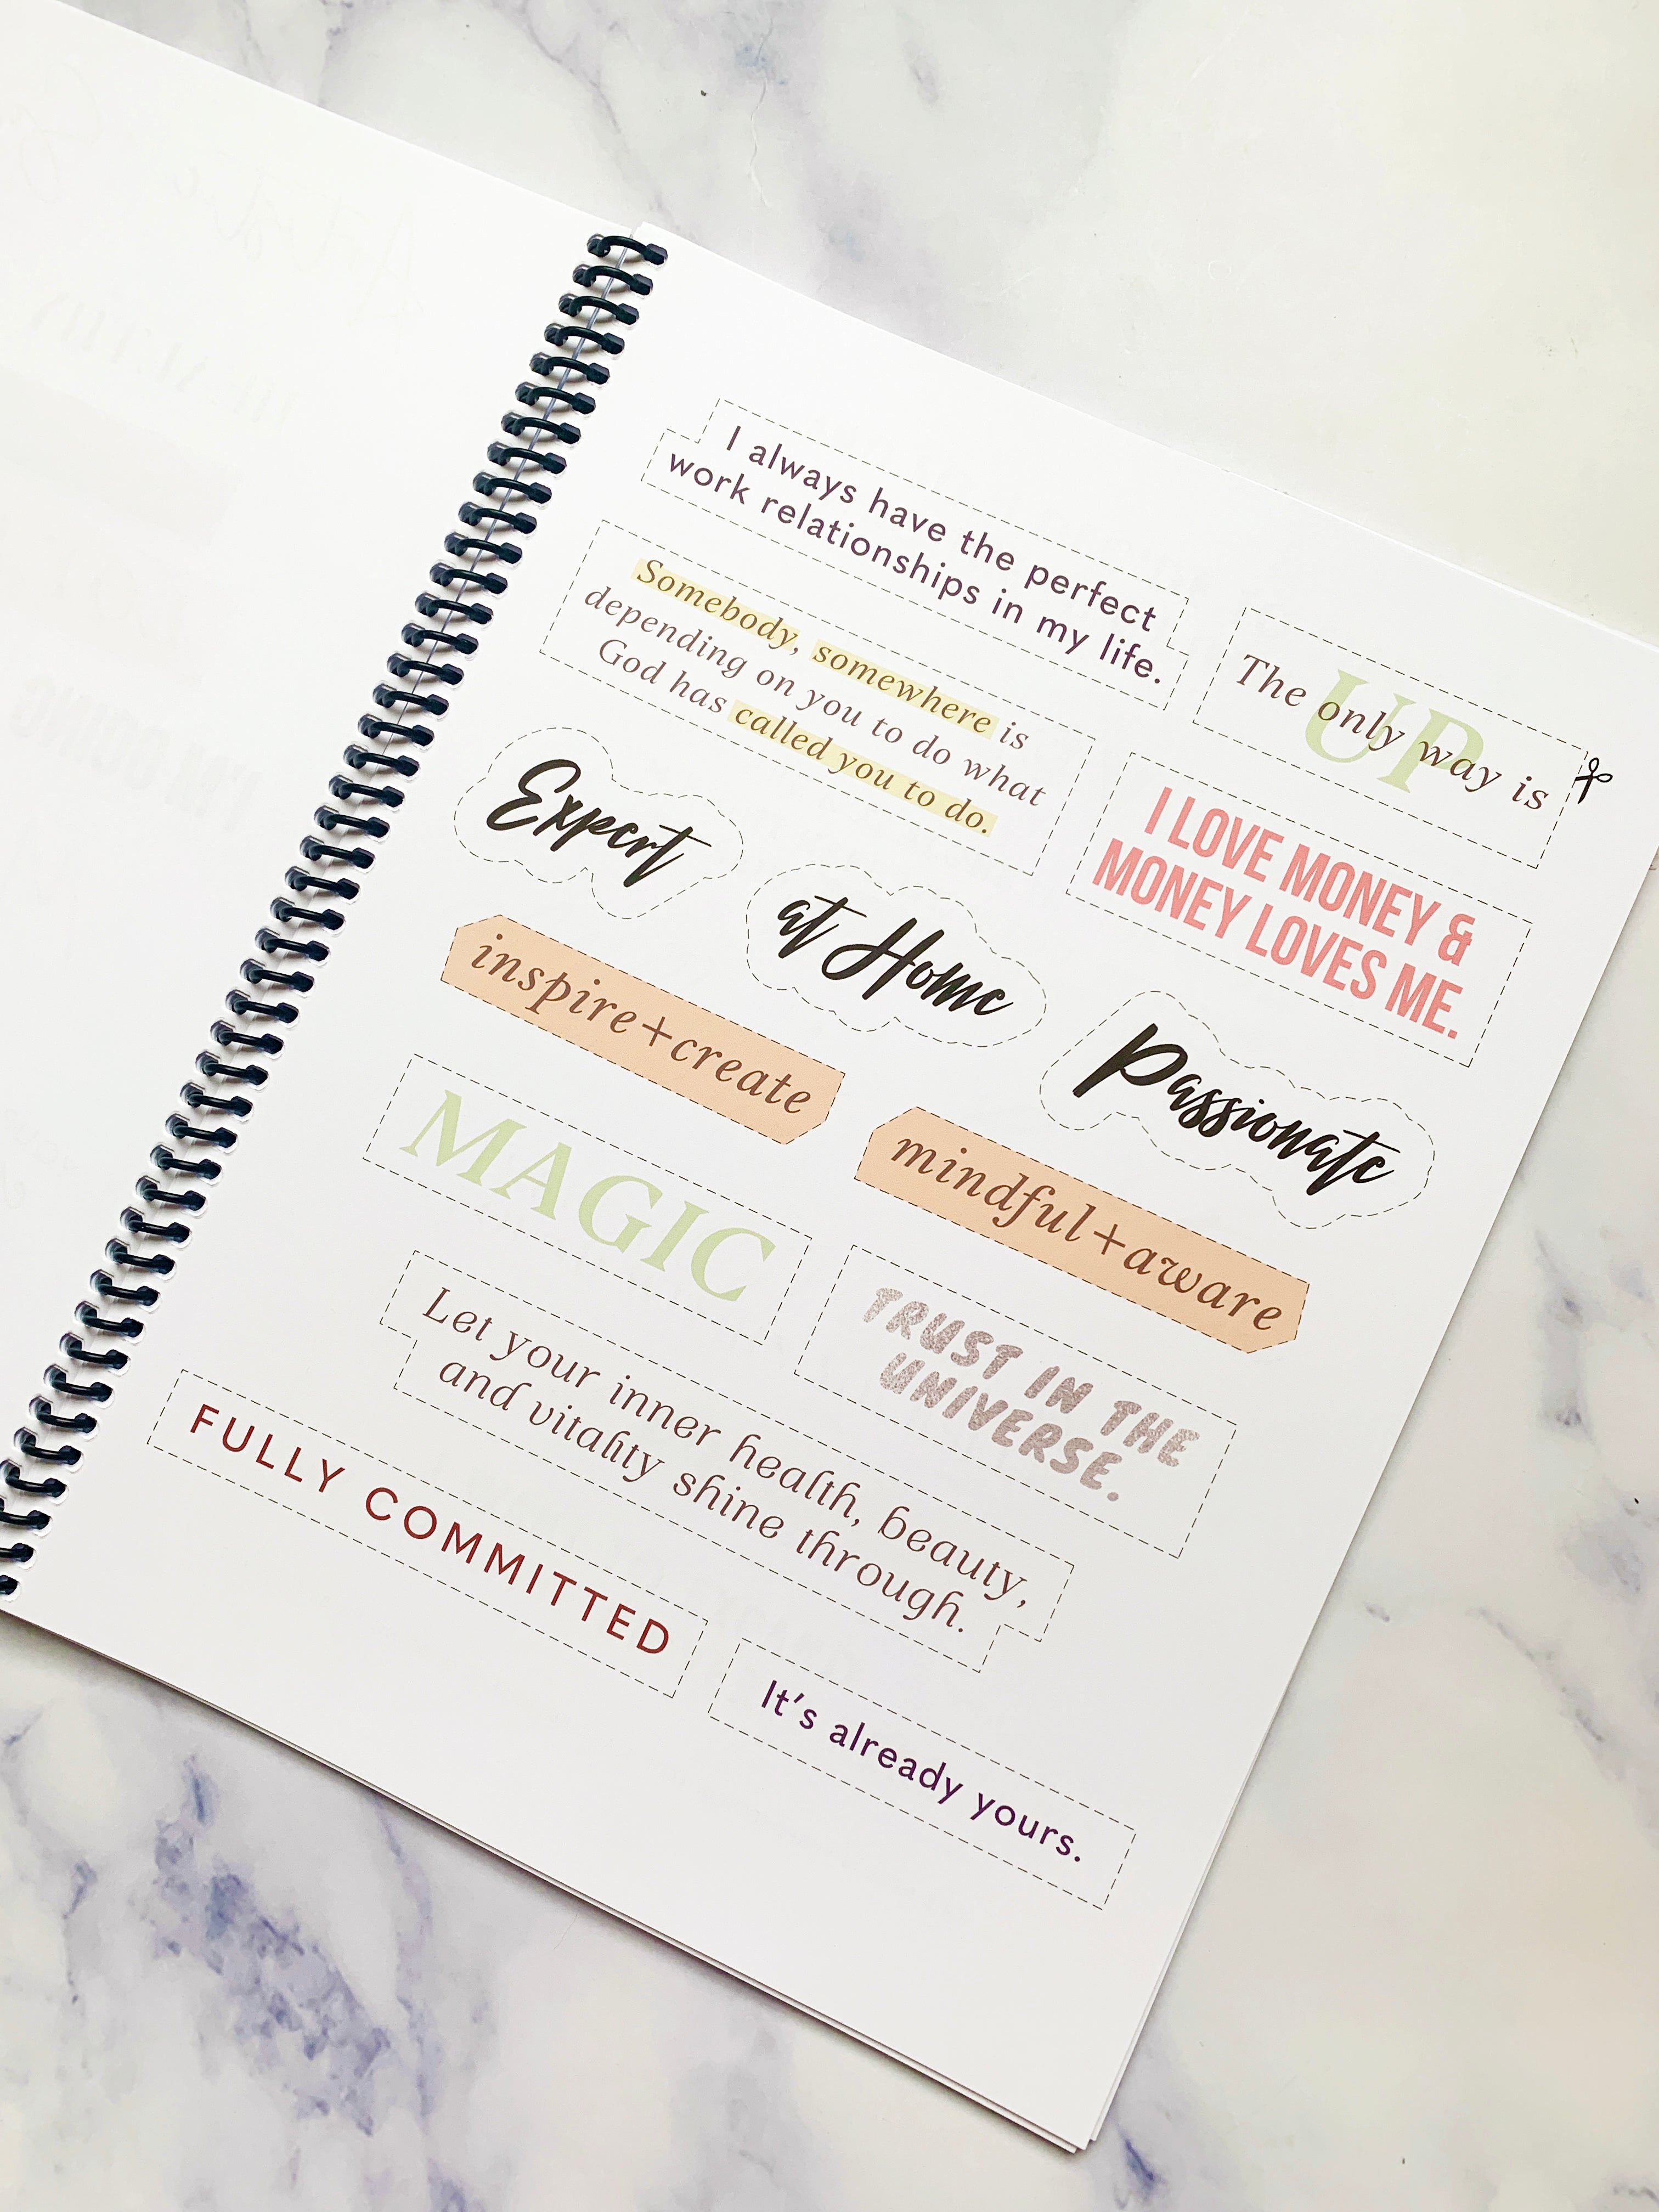 I always have the perfect
work relationships in my life.
The only way is
UP
Somebody, somewhere is
depending on you to do what
God has called you to do.
I LOVE MONEY &
MONEY LOVES ME.
Expert
at Home
Passionate
inspire+create
mindful+aware
MAGIC
TRUST IN THE
UNIVERSE.
Let your inner health, beauty,
and vitality shine through.
FULLY COMMITTED
It's already yours.